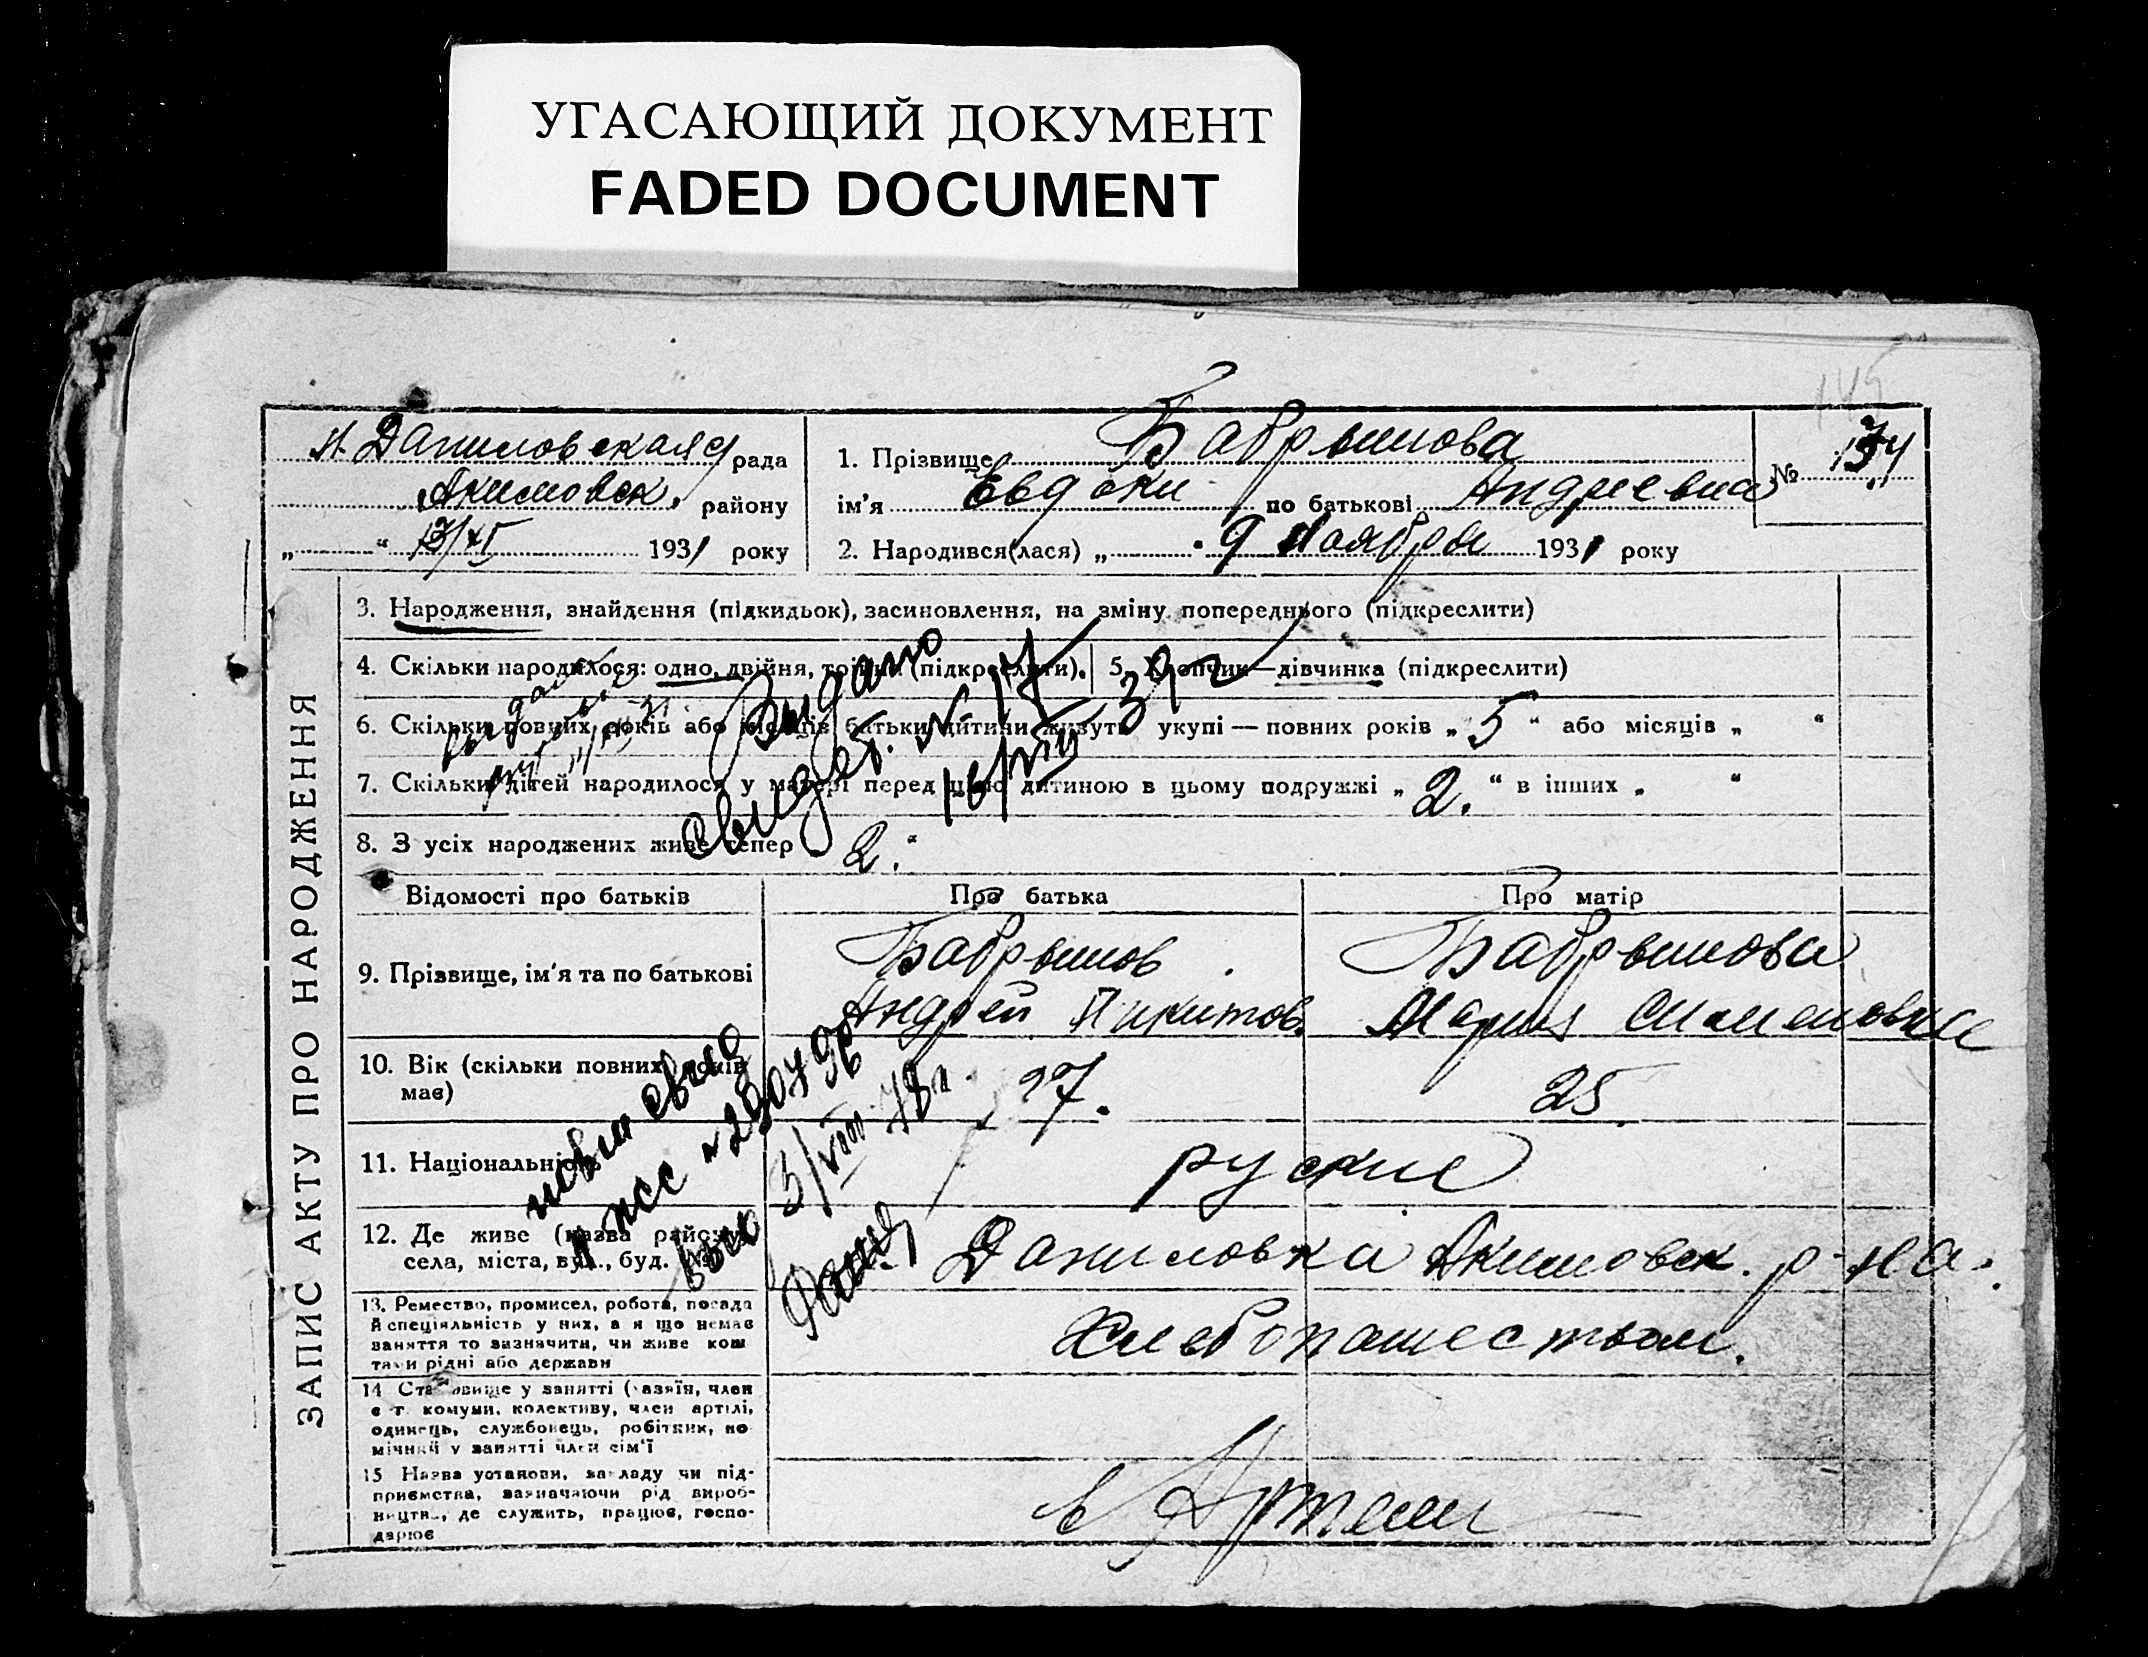 УГАСАЮЩИЙ ДОКУМЕНТ
FADED DOCUMENT
Н. Даниловская рада
Акимовск. району
„ “ 13/XI 1931 року
1. Прізвище Бабрышова
ім'я Евдоки по батькові Андреевна
2. Народився(лася) „ “ 9 Ноября 1931 року
№
ЗАПИС АКТУ ПРО НАРОДЖЕННЯ
3. Народження, знайдення (підкидьок), засиновлення, на зміну попереднього (підкреслити)
4. Скільки народилося: одно, двійня, трійня (підкреслити). 5. Хлопчик—дівчинка (підкреслити)
6. Скільки повних років або місяців батьки дитини живуть укупі — повних років „ 5 “ або місяців „ “
7. Скільки дітей народилося у матері перед цією дитиною в цьому подружжі „ 2. “ в інших „ “
8. З усіх народжених живе тепер „ 2. “
Выдано
свидет. № 17
16/VIII 39 г
Відомості про батьків Про батька Про матір
9. Прізвище, ім'я та по батькові
Бабрышов
Андрей Никитов.
Бабрышова
Мария Симеоновна
10. Вік (скільки повних років
має)
27. 25
11. Національність руские
12. Де живе (назва району,
села, міста, вул., буд. №
Даниловка Акимовск. р-на.
3/VIII 78 г
13. Ремество, промисел, робота, посада
й спеціяльність у них, а я що немає
заняття то зазначити, чи живе кош
тами рідні або держави
Хлебопашеством.
14 Становище у занятті (хазяїн, член
с.-г. комуни, колективу, член артілі,
одинець, службовець, робітник, по-
мічний у занятті член сім'ї
15 Назва установи, закладу чи під-
приємства, зазначаючи рід вироб-
ництва, де служить, працює, госпо-
дарює
в Артели